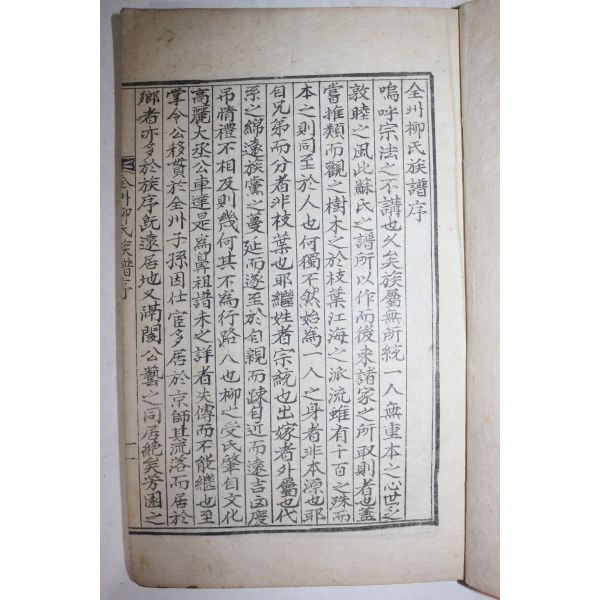 全州柳氏族譜序
嗚呼宗法之不講也久矣族屬無所統一人無重本之心世之
敦睦之風此蘇氏之譜所以作而後來諸家之所取則者也蓋
嘗推類而觀之樹木之於枝葉江海之派流雖有千百之殊而
本之則同至於人也何獨不然始為一人之身者非本源也耶
自兄弟而分者非枝葉也耶繼姓者宗統也出嫁者外屬也代
系之綿遠族黨之蔓延而遂至於自親而疎自近而遠吉凶慶
吊情禮不相及則幾何其不為行路人也柳之受氏肇自文化
高麗大丞公車達是為鼻祖譜未之詳者失傳而不能繼也至
掌令公移貫於全州子孫因仕宦多居於京師其流落而居於
鄉者亦多於族序旣遠居地又隔閡公藝之同居絶矣芳園之
全州柳氏族譜序
一